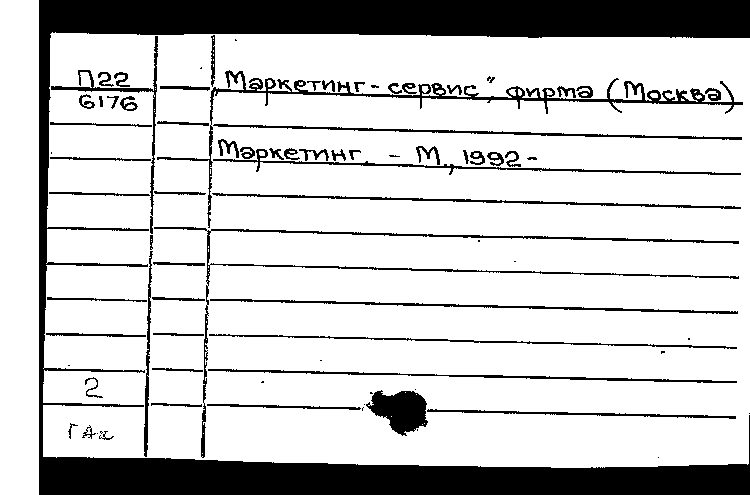 П22
6176
„Маркетинг-сервис", фирма (Москва)
Маркетинг. - М., 1992-
2